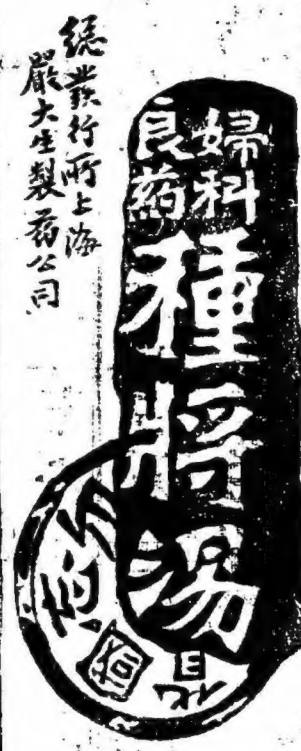 婦科
良药
種將湯
總發行所上海
嚴大生製药公司